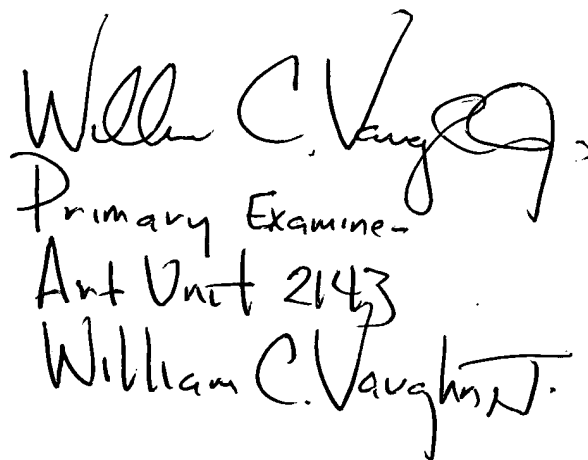 William C. Vaughn Jr.
Primary Examiner
Art Unit 2143
William C. Vaughn Jr.